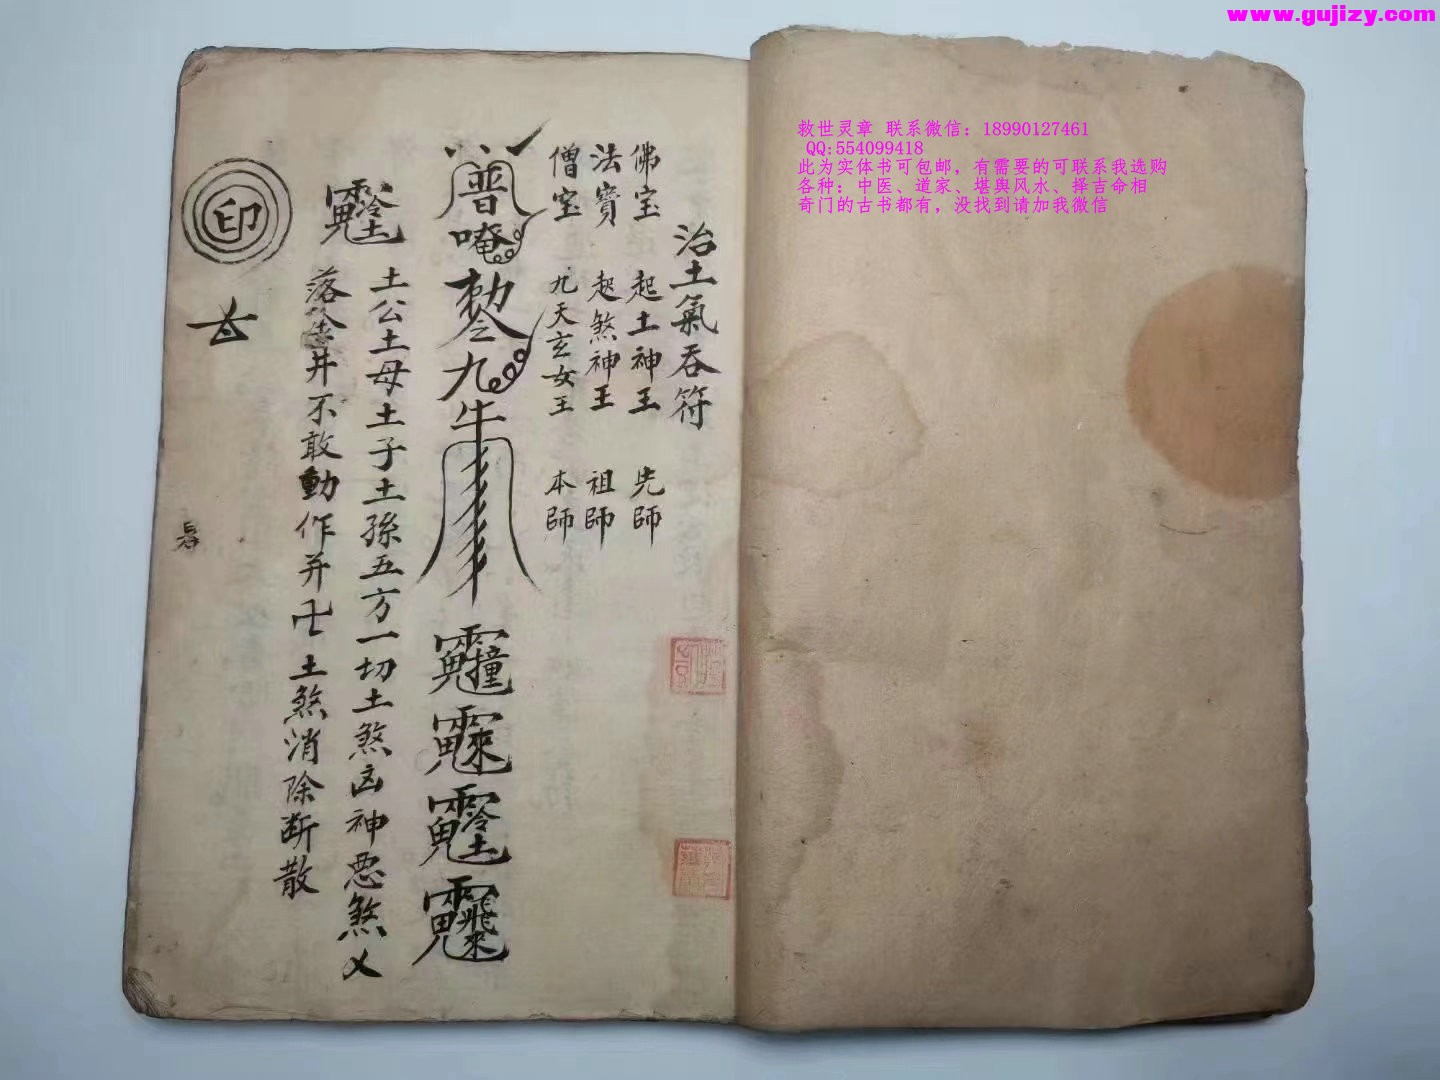 www.gujizy.com
救世灵章 联系微信：18990127461
QQ:554099418
此为实体书可包邮，有需要的可联系我选购
各种：中医、道家、堪舆风水、择吉命相
奇门的古书都有，没找到请加我微信
治土氣吞符
佛宝 起土神王 先師
法寳 起煞神王 祖師
僧宝 九天玄女王 本師
普唵勅令九牛
土公土母土子土孫五方一切土煞凶神恶煞㐅
落井不敢動作并卍土煞消除断散
印